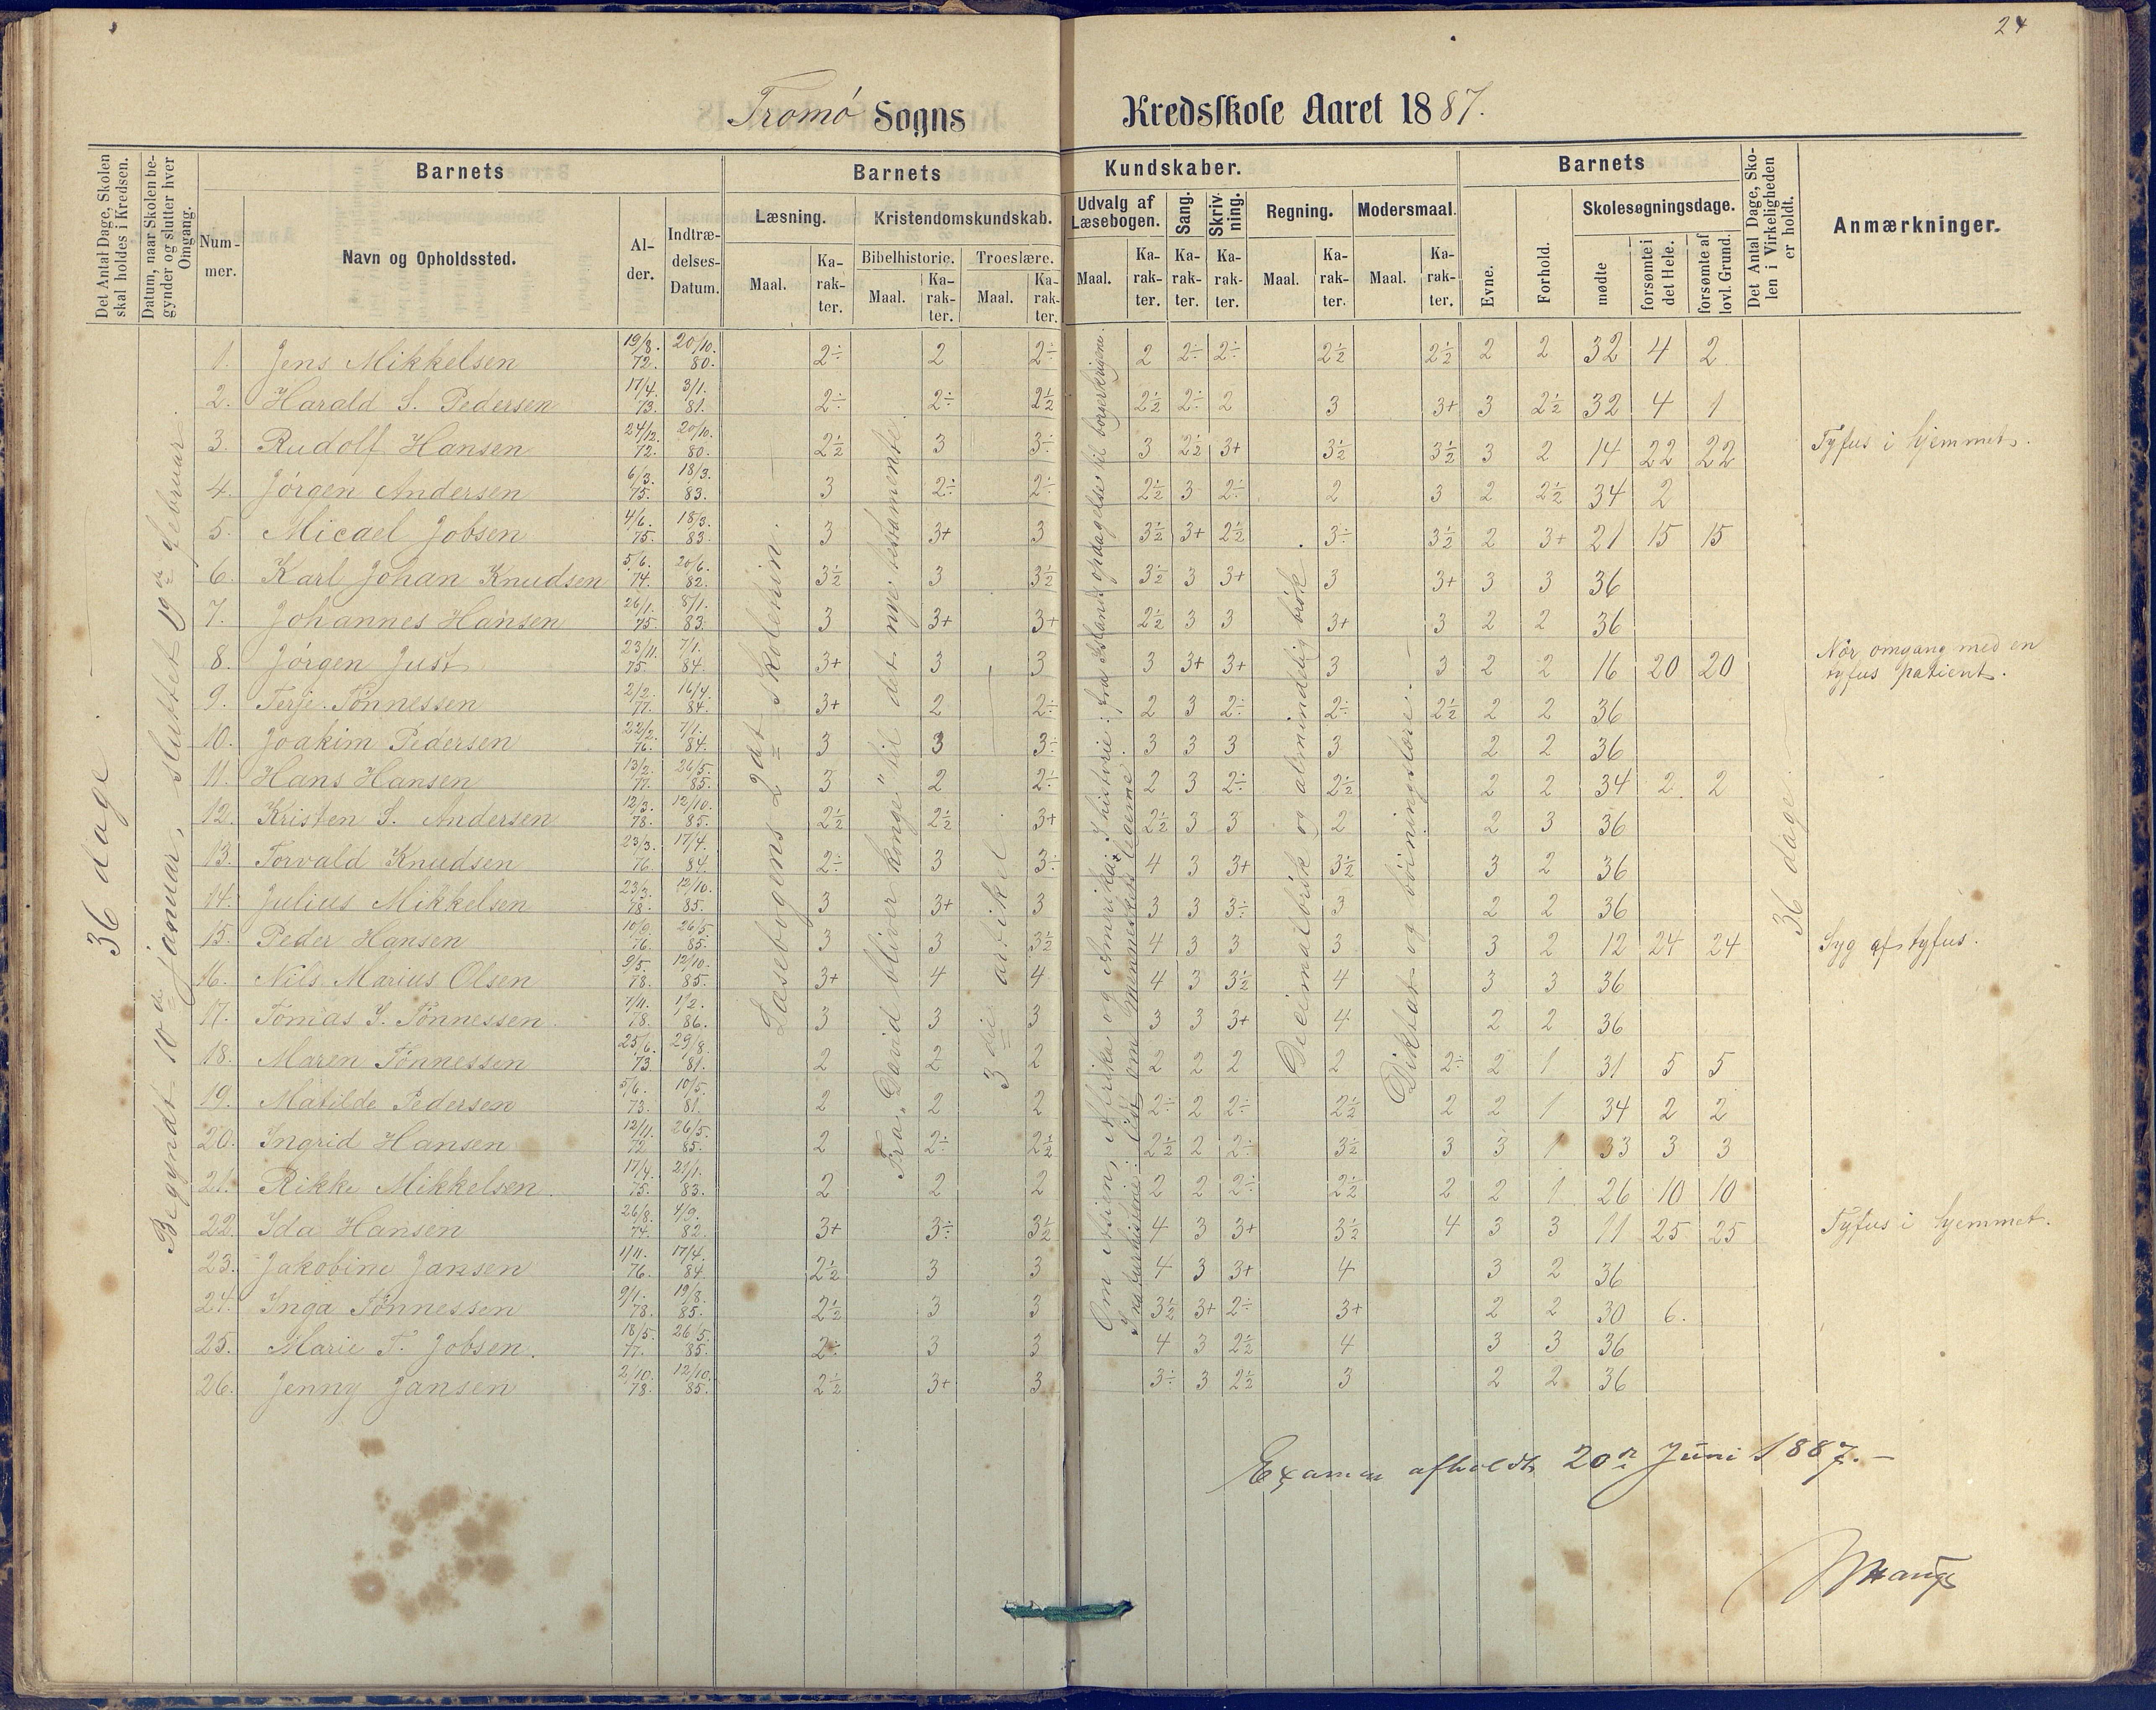 24
Tromø Sogns Kredsskole Aaret 1887.
Det Antal Dage, Skolen skal holdes i Kredsen.
Datum, naar Skolen begynder og slutter hver Omgang.
Barnets
Nummer.
Navn og Opholdssted.
Alder.
Indtrædelses-Datum.
Barnets Kundskaber.
Læsning.
Maal.
Karakter.
Kristendomskundskab.
Bibelhistorie.
Maal.
Karakter.
Troeslære.
Maal.
Karakter.
Udvalg af Læsebogen.
Maal.
Karakter.
Sang.
Karakter.
Skrivning.
Karakter.
Regning.
Maal.
Karakter.
Modersmaal.
Maal.
Karakter.
Barnets
Evne.
Forhold.
Skolesøgningsdage.
mødte
forsømte i det Hele.
forsømte af lovl. Grund.
Det Antal Dage, Skolen i Virkeligheden er holdt.
Anmærkninger.
36 dage.
Begyndt 10de januar, sluttet 19de februar.
Læsebogens 2det skoletrin.
Fra "David bliver konge" til det nye testamente.
3die artikel
Om Asien, Afrika og Amerika; I historie: fra Islands opdagelse til borgerkrigene.
I naturhistorie: lidt om menneskets legeme.
Decimalbrøk og almindelig brøk.
Diktat og bøiningslære.
36 dage.
1. Jens Mikkelsen 19/8. 72. 20/10. 80. 2÷ 2 2÷ 2 2÷ 2÷ 2½ 2½ 2 2 32 4 2
2. Harald S. Pedersen 17/4. 73. 3/1. 81. 2÷ 2÷ 2½ 2½ 2÷ 2 3 3+ 3 2½ 32 4 1
3. Rudolf Hansen 24/12. 72. 20/10. 80. 2½ 3 3÷ 3 2½ 3+ 3½ 3½ 3 2 14 22 22 Tyfus i hjemmet.
4. Jørgen Andersen 6/3. 75. 18/3. 83. 3 2÷ 2÷ 2½ 3 2÷ 2 3 2 2½ 34 2
5. Micael Jobsen 4/6. 75. 18/3. 83. 3 3+ 3 3½ 3+ 2½ 3÷ 3½ 2 3+ 21 15 15
6. Karl Johan Knudsen 5/6. 74. 20/6. 82. 3½ 3 3½ 3½ 3 3+ 3 3+ 3 3 36
7. Johannes Hansen 26/1. 75. 8/1. 83. 3 3+ 3+ 2½ 3 3 3+ 3 2 2 36
8. Jørgen Just 23/11. 75. 7/1. 84. 3+ 3 3 3 3+ 3+ 3 3 2 2 16 20 20 Nær omgang med en tyfus patient.
9. Terje Tønnessen 2/2. 77. 16/4. 84. 3+ 2 2÷ 2 3 2÷ 2÷ 2½ 2 2 36
10. Joakim Pedersen 22/2. 76. 7/1. 84. 3 3 3÷ 3 3 3 3 2 2 36
11. Hans Hansen 13/2. 77. 26/5. 85. 3 2 2÷ 2 3 2÷ 2½ 2 2 34 2 2
12. Kristen S. Andersen 12/3. 78. 12/10. 85. 2½ 2½ 3+ 2½ 3 3 2 2 3 36
13. Torvald Knudsen 23/3. 76 17/4. 84. 2÷ 3 3÷ 4 3 3+ 3½ 3 2 36
14. Julius Mikkelsen 23/3. 78. 12/10. 85. 3 3+ 3 3 3 3÷ 3 2 2 36
15. Peder Hansen 10/9. 76. 26/5. 85. 3 3 3½ 4 3 3 3 3 2 12 24 24 Syg af tyfus.
16. Nils Marius Olsen 9/5. 78. 12/10. 85. 3+ 4 4 4 3 3½ 4 3 3 36
17. Tomas S. Tønnessen. 7/11. 78. 1/2. 86. 3 3 3 3 3 3+ 4 2 2 36
18. Maren Tønnessen 25/6. 73 29/8. 81. 2 2 2 2 2 2 2 2÷ 2 1 31 5 5
19. Matilde Pedersen 5/6. 73. 10/5. 81. 2 2 2 2÷ 2 2÷ 2½ 2 2 1 34 2 2
20. Ingrid Hansen 12/11. 72 26/5. 85. 2 2÷ 2½ 2½ 2 2÷ 3½ 3 3 1 33 3 3
21. Rikke Mikkelsen. 17/4. 75. 21/1. 83. 2 2 2 2 2 2÷ 2½ 2 2 1 26 10 10
22. Ida Hansen 26/8. 74. 4/9. 82. 3+ 3÷ 3½ 4 3 3+ 3½ 4 3 3 11 25 25 Tyfus i hjemmet.
23. Jakobine Jansen 1/11. 76. 17/4. 84. 2½ 3 3 4 3 3+ 4 3 2 36
24. Inga Tønnessen 9/1. 78. 19/8. 85. 2½ 3 3 3½ 3+ 2÷ 3+ 2 2 30 6.
25. Marie T. Jobsen. 18/5. 77. 26/5. 85. 2÷ 3 3 4 3 2½ 4 3 3 36
26. Jenny Jansen 2/10. 78. 12/10. 85. 2½ 3+ 3 3÷ 3 2½ 3 2 2 36
Examen afholdt 20de Juni 1887.-